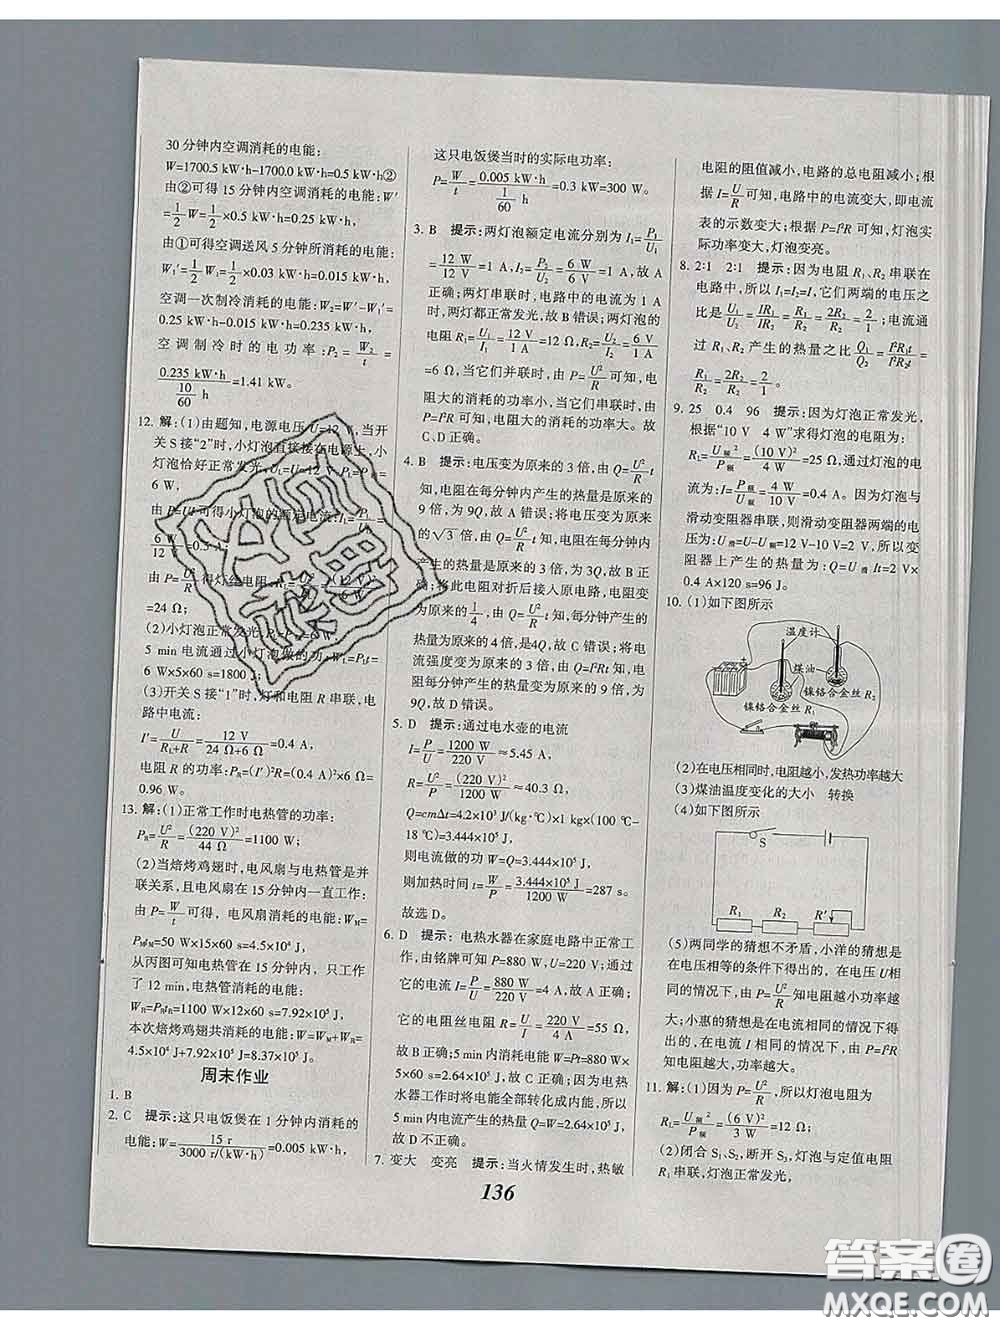 30 分钟内空调消耗的电能:
W=1700.5 kW·h-1700.0 kW·h=0.5 kW·h②
由②可得 15 分钟内空调消耗的电能:W′
=1/2 W=1/2×0.5 kW·h=0.25 kW·h,
由①可得空调送风 5 分钟所消耗的电能:
W₁′=1/2 W₁=1/2×0.03 kW·h=0.015 kW·h,
空调一次制冷消耗的电能:W₂=W′-W₁′=
0.25 kW·h-0.015 kW·h=0.235 kW·h,
空调制冷时的电功率:P₂=W₂/t=
0.235 kW·h/(10/60 h)=1.41 kW。
12. 解:(1)由题知,电源电压 U=12 V,当开
关 S 接“2”时,小灯泡直接接在电源上,小
灯泡恰好正常发光,U₁=U=12 V,P₁=P=6 W
由 P=UI 可得小灯泡的额定电流:I₁=P₁/U₁=
6 W/12 V=0.5 A
由 P=U²/R 得灯丝电阻,R=U²/P=(12 V)²/6 W
=24 Ω;
(2)小灯泡正常发光,P₁=P=6 W,
5 min 电流通过小灯泡做的功:W₁=P₁t=
6 W×5×60 s=1800 J;
(3)开关 S 接“1”时,灯和电阻 R 串联,电
路中电流:
I′=U/(R_L+R)=12 V/(24 Ω+6 Ω)=0.4 A,
电阻 R 的功率:P_R=(I′)²R=(0.4 A)²×6 Ω=
0.96 W。
13. 解:(1)正常工作时电热管的功率:
P_R=U²/R=(220 V)²/44 Ω=1100 W;
(2)当焙烤鸡翅时,电风扇与电热管是并
联关系,且电风扇在 15 分钟内一直工作:
由 P=W/t 可得,电风扇消耗的电能:W_M=
P_M t_M=50 W×15×60 s=4.5×10⁴ J;
从丙图可知电热管在 15 分钟内,只工作
了 12 min,电热管消耗的电能:
W_R=P_R t_R=1100 W×12×60 s=7.92×10⁵ J;
本次焙烤鸡翅共消耗的电能:W=W_M+W_R=
4.5×10⁴ J+7.92×10⁵ J=8.37×10⁵ J。
周末作业
1. B
2. C 提示:这只电饭煲在 1 分钟内消耗的
电能:W=15 r/3000 r/(kW·h)=0.005 kW·h,
这只电饭煲当时的实际电功率:
P=W/t=0.005 kW·h/(1/60 h)=0.3 kW=300 W。
3. B 提示:两灯泡额定电流分别为 I₁=P₁/U₁
=12 W/12 V=1 A,I₂=P₂/U₂=6 W/6 V=1 A,故 A 正
确;两灯串联时,电路中的电流为 1 A
时,两灯都正常发光,故 B 错误;两灯泡的
电阻 R₁=U₁/I₁=12 V/1 A=12 Ω,R₂=U₂/I₂=6 V/1 A
=6 Ω,当它们并联时,由 P=U²/R 可知,电
阻大的消耗的功率小,当它们串联时,由
P=I²R 可知,电阻大的消耗的功率大。故
C、D 正确。
4. B 提示:电压变为原来的 3 倍,由 Q=U²/R t
知,电阻在每分钟内产生的热量是原来的
9 倍,故 A 错误;将电压变为原来
的√3 倍,由 Q=U²/R t 知,电阻在每分钟内
产生的热量为原来的 3 倍,为 3Q,故 B 正
确;将此电阻对折后接入原电路,电阻
变为原来的 1/4,由 Q=U²/R t 知,每分钟产生
的热量为原来的 4 倍,是4Q,故 C 错误;将电
流强度变为原来的 3 倍,由 Q=I²Rt 知,电
阻每分钟产生的热量变为原来的 9 倍,为
9Q,故 D 错误。
5. D 提示:通过电水壶的电流
I=P/U=1200 W/220 V≈5.45 A,
R=U²/P=(220 V)²/1200 W≈40.3 Ω,
Q=cmΔt=4.2×10³ J/(kg·℃)×1 kg×(100 ℃-
18 ℃)=3.444×10⁵ J,
则电流做的功 W=Q=3.444×10⁵ J,
则加热时间 t=W/P=3.444×10⁵ J/1200 W=287 s。
故选 D。
6. D 提示:电热水器在家庭电路中正常工
作,由铭牌可知 P=880 W,U=220 V;通过
它的电流 I=P/U=880 W/220 V=4 A,故 A 正确;
它的电阻丝电阻 R=U/I=220 V/4 A=55 Ω,
故 B 正确;5 min 内消耗电能 W=Pt=880 W
×5×60 s=2.64×10⁵ J,故 C 正确;因为电热
水器工作时将电能全部转化成内能,所以
5 min 内电流产生的热量 Q=W=2.64×10⁵ J,
故 D 不正确。
7. 变大 变亮 提示:当火情发生时,热敏
电阻的阻值减小,电路的总电阻减小;根
据 I=U/R 可知,电路中的电流变大,即电流
表的示数变大;根据 P=I²R 可知,灯泡实
际功率变大,灯泡变亮。
8. 2:1 2:1 提示:因为电阻 R₁、R₂ 串联在
电路中,所以 I₁=I₂=I,它们两端的电压之
比是 U₁/U₂=IR₁/IR₂=R₁/R₂=2R₂/R₂=2/1;电流通
过 R₁、R₂ 产生的热量之比 Q₁/Q₂=I²R₁t/I²R₂t=
R₁/R₂=2R₂/R₂=2/1。
9. 25 0.4 96 提示:因为灯泡正常发光,
根据“10 V 4 W”求得灯泡的电阻为:
R₁=U额²/P额=(10 V)²/4 W=25 Ω,通过灯泡的电
流为:I=P额/U额=4 W/10 V=0.4 A。因为灯泡与
滑动变阻器串联,则滑动变阻器两端的电
压为:U滑=U-U额=12 V-10 V=2 V,所以变
阻器上产生的热量为:Q=U滑 It=2 V×
0.4 A×120 s=96 J。
10. (1)如下图所示
温度计
煤油
镍铬合金丝 R₂
镍铬合金丝 R₁
(2)在电压相同时,电阻越小,发热功率越大
(3)煤油温度变化的大小 转换
(4)如下图所示
S
R₁ R₂ R′
(5)两同学的猜想不矛盾,小洋的猜想是
在电压相等的条件下得出的,在电压 U
相同的情况下,由 P=U²/R 知电阻越小功率越
大;小惠的猜想是在电流相同的情况下得
出的,在电流 I 相同的情况下,由 P=I²R
知电阻越大,功率越大。
11. 解:(1)因为 P=U²/R,所以灯泡电阻为
R₁=U额²/P额=(6 V)²/3 W=12 Ω;
(2)闭合 S₁、S₂,断开 S₃,灯泡与定值电阻
R₁串联,灯泡正常发光,
136
答案圈
MXQE.COM